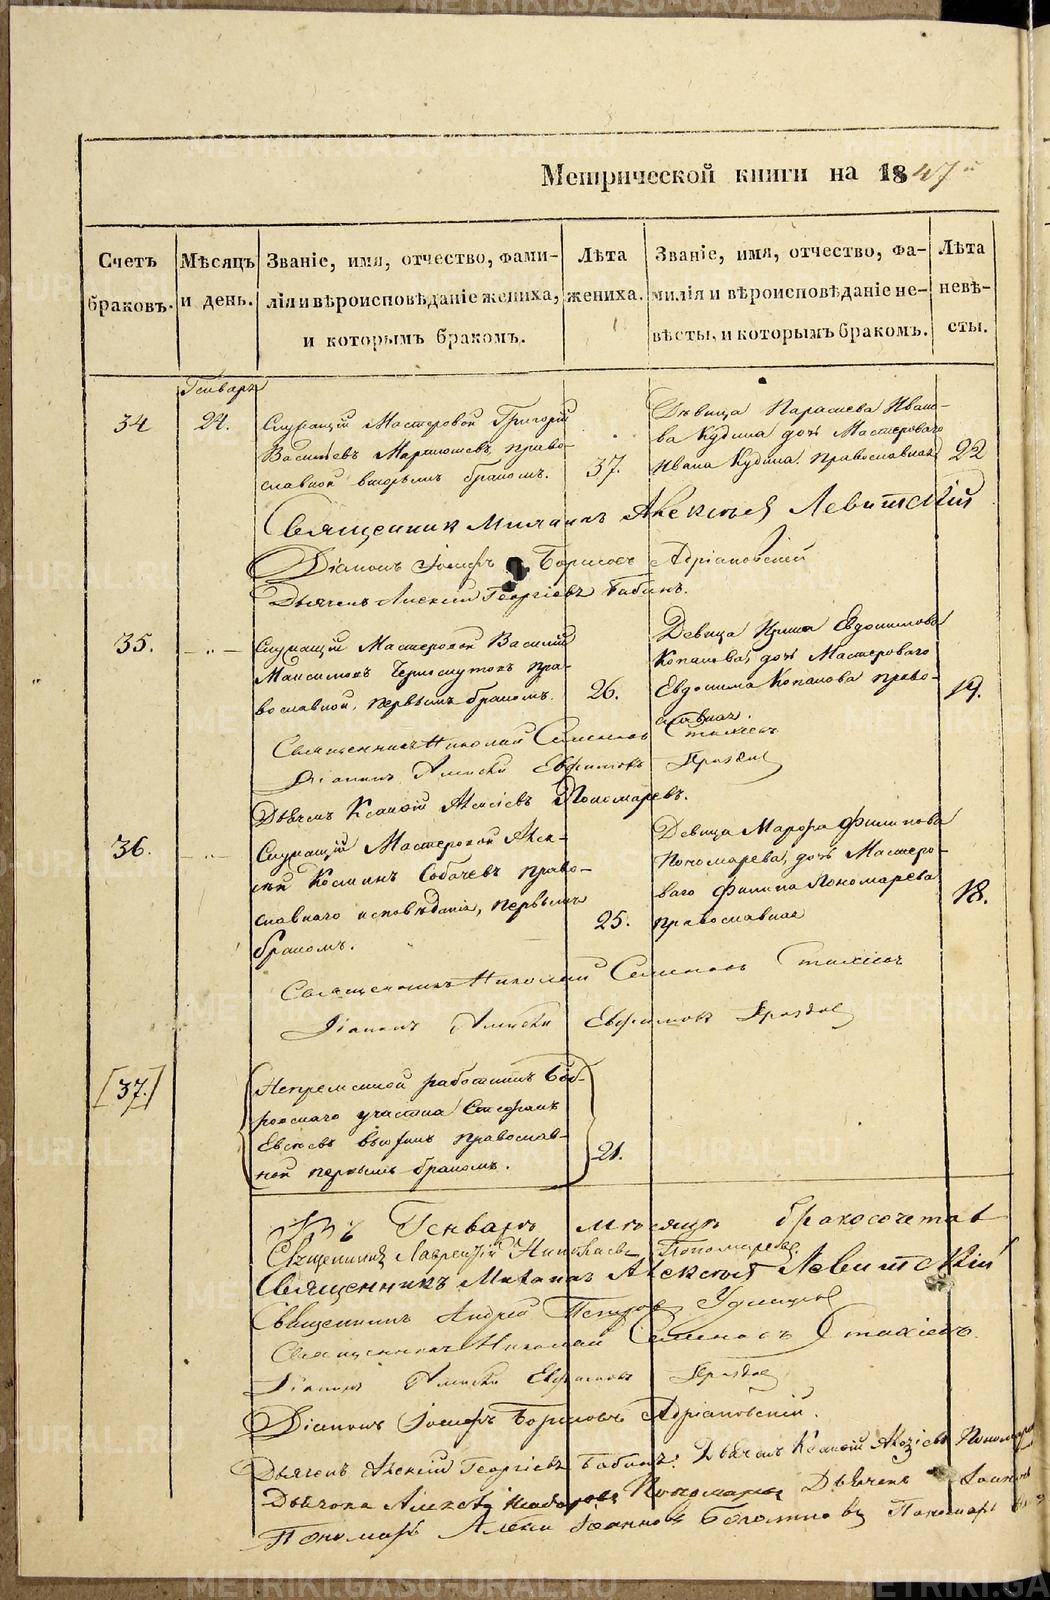 Метрической книги на 1847й
Счетъ браковъ.
Мѣсяцъ и день.
Званіе, имя, отчество, фами-
лія и вѣроисповѣданіе жениха,
и которымъ бракомъ.
Лѣта
жениха.
Званіе, имя, отчество, фа-
милія и вѣроисповѣданіе не-
вѣсты, и которымъ бракомъ.
Лѣта
невѣ-
сты.
Генварь
34
24.
Служащій Мастеровой Григорій
Васильевъ право-
славной вторымъ бракомъ.
37.
Дѣвица Парасева Ивано-
ва Кудина дочь Мастероваго
Ивана Кудина православная
22
Священник Михаилъ Алексѣев Левитскій
Діаконъ Іосифъ Борисовъ Адріановскій
Дьячекъ Алексій Георгіевъ Бабинъ.
35.
- " -
Служащій Мастеровой Василій
Максимовъ пра-
вославной, первымъ бракомъ.
26.
Девица Ирина Евдокимова
Копалова, дочь Мастероваго
Евдокима Копалова право-
славная.
19.
Священникъ Николай Семеновъ Стахіевъ
Діаконъ Алексѣй Евфимовъ
Дьячекъ Алексіевъ Пономаревъ.
36.
- " -
Служащій Мастеровой Алек-
сѣй Козминъ Собачевъ право-
славнаго исповѣданія, первымъ
бракомъ.
25.
Девица Марфа Филипова
Пономарева, дочь Мастеро-
ваго Филипа Пономарева
православная
18.
Священникъ Николай Семеновъ Стахіевъ
Діаконъ Алексѣй Евфимовъ
[37.]
Непременной работникъ Боб-
ровскаго участка Стефанъ
православ-
ной первымъ бракомъ.
21.
Генварѣ месяцѣ бракосочета
Священникъ Лаврентій Николаевъ Пономаревъ
Священникъ Михаилъ Алексѣев Левитскій
Священникъ Андрей Петровъ Удинцов
Священникъ Николай Семеновъ Стахіевъ.
Діаконъ Алексѣй Евфимовъ
Діаконъ Іосифъ Борисовъ Адріановскій.
Дьячекъ Алексій Георгіевъ Бабинъ. Дьячекъ Алексіевъ Пономарев
Дьячекъ
Пономарь Іоаннов Пономарь
METRIKI.GASO-URAL.RU